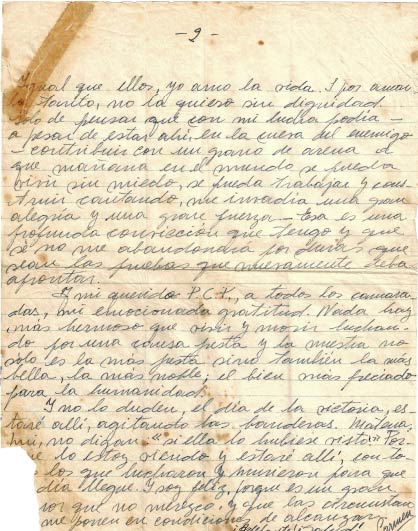 - 2 -
Igual que ellos, yo amo la vida. Y por amar
la tanto, no la quiero sin dignidad.
Solo de pensar que con mi lucha podía -
a pesar de estar ahí, en la cueva del enemigo
- contribuir con un grano de arena a
que mañana en el mundo se pueda
vivir sin miedo, se pueda trabajar y cons-
truir cantando, me invadía una gran
alegría y una gran fuerza. - Esa es una
profunda convicción que tengo y que
sé no me abandonará por duras que
sean las pruebas que nuevamente deba
afrontar.
Y mi querido P.C.P., a todos los camara-
das, mi emocionada gratitud. Nada hay
más hermoso que vivir y morir luchan-
do por una causa justa y la nuestra no
solo es la más justa sino también la más
bella, la más noble; el bien más preciado
para la humanidad.
Y no lo duden, el día de la victoria, es-
taré allí, agitando las banderas.
no digan: "si ella lo hubiese visto" Por-
que lo estoy viendo y estaré allí, con to-
los que lucharon y murieron para que
día llegue. Y soy feliz, porque es un gran
nor que no merezco. Y que las circunstan
me ponen en condiciones de alcanzar.